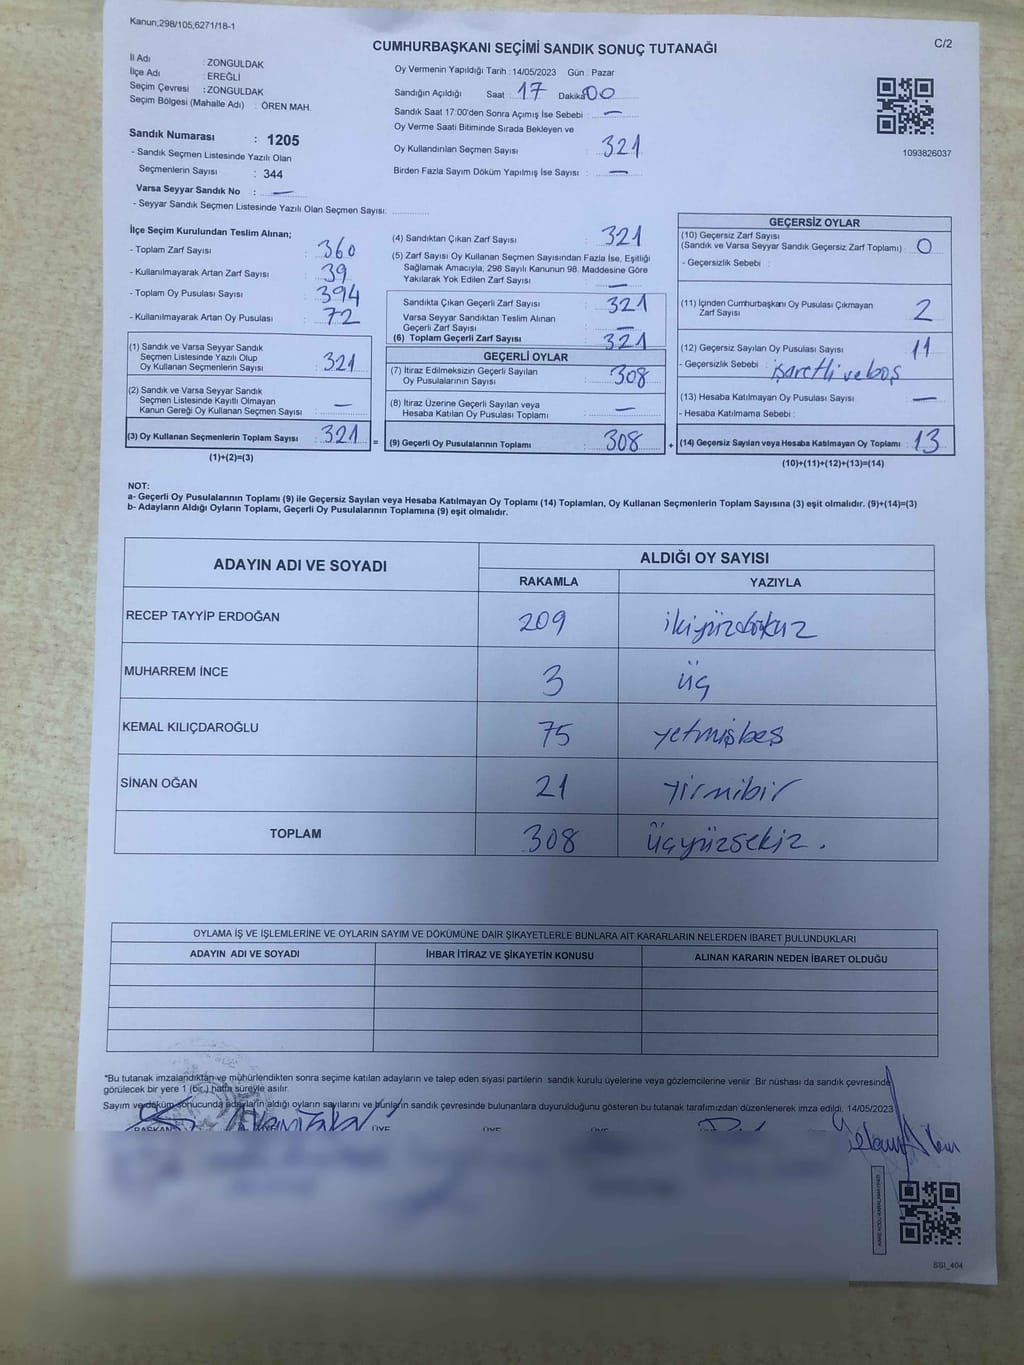 Kanun;298/105;6271/18-1
CUMHURBAŞKANI SEÇİMİ SANDIK SONUÇ TUTANAĞI
C/2
İl Adı : ZONGULDAK
İlçe Adı : EREĞLİ
Seçim Çevresi : ZONGULDAK
Seçim Bölgesi (Mahalle Adı) : ÖREN MAH.
Sandık Numarası : 1205
- Sandık Seçmen Listesinde Yazılı Olan
Seçmenlerin Sayısı : 344
Varsa Seyyar Sandık No : —
- Seyyar Sandık Seçmen Listesinde Yazılı Olan Seçmen Sayısı:
Oy Vermenin Yapıldığı Tarih : 14/05/2023 Gün : Pazar
Sandığın Açıldığı Saat : 17 Dakika 00
Sandık Saat 17:00'den Sonra Açımış İse Sebebi : —
Oy Verme Saati Bitiminde Sırada Bekleyen ve
Oy Kullandırılan Seçmen Sayısı : 321
Birden Fazla Sayım Döküm Yapılmış İse Sayısı : —
1093826037
İlçe Seçim Kurulundan Teslim Alınan;
- Toplam Zarf Sayısı : 360
- Kullanılmayarak Artan Zarf Sayısı : 39
- Toplam Oy Pusulası Sayısı : 394
- Kullanılmayarak Artan Oy Pusulası : 72
(1) Sandık ve Varsa Seyyar Sandık
Seçmen Listesinde Yazılı Olup
Oy Kullanan Seçmenlerin Sayısı : 321
(2) Sandık ve Varsa Seyyar Sandık
Seçmen Listesinde Kayıtlı Olmayan
Kanun Gereği Oy Kullanan Seçmen Sayısı : —
(3) Oy Kullanan Seçmenlerin Toplam Sayısı : 321
(1)+(2)=(3)
=
(4) Sandıktan Çıkan Zarf Sayısı : 321
(5) Zarf Sayısı Oy Kullanan Seçmen Sayısından Fazla İse, Eşitliği
Sağlamak Amacıyla; 298 Sayılı Kanunun 98. Maddesine Göre
Yakılarak Yok Edilen Zarf Sayısı : —
Sandıkta Çıkan Geçerli Zarf Sayısı : 321
Varsa Seyyar Sandıktan Teslim Alınan
Geçerli Zarf Sayısı : —
(6) Toplam Geçerli Zarf Sayısı : 321
GEÇERLİ OYLAR
(7) İtiraz Edilmeksizin Geçerli Sayılan
Oy Pusulalarının Sayısı : 308
(8) İtiraz Üzerine Geçerli Sayılan veya
Hesaba Katılan Oy Pusulası Toplamı : —
(9) Geçerli Oy Pusulalarının Toplamı : 308
+
GEÇERSİZ OYLAR
(10) Geçersiz Zarf Sayısı
(Sandık ve Varsa Seyyar Sandık Geçersiz Zarf Toplamı) : 0
- Geçersizlik Sebebi :
(11) İçinden Cumhurbaşkanı Oy Pusulası Çıkmayan
Zarf Sayısı : 2
(12) Geçersiz Sayılan Oy Pusulası Sayısı : 11
- Geçersizlik Sebebi : işaretli ve boş
(13) Hesaba Katılmayan Oy Pusulası Sayısı : —
- Hesaba Katılmama Sebebi :
(14) Geçersiz Sayılan veya Hesaba Katılmayan Oy Toplamı : 13
(10)+(11)+(12)+(13)=(14)
NOT:
a- Geçerli Oy Pusulalarının Toplamı (9) ile Geçersiz Sayılan veya Hesaba Katılmayan Oy Toplamı (14) Toplamları, Oy Kullanan Seçmenlerin Toplam Sayısına (3) eşit olmalıdır. (9)+(14)=(3)
b- Adayların Aldığı Oyların Toplamı, Geçerli Oy Pusulalarının Toplamına (9) eşit olmalıdır.
ADAYIN ADI VE SOYADI ALDIĞI OY SAYISI
RAKAMLA YAZIYLA
RECEP TAYYİP ERDOĞAN 209 ikiyüzdokuz
MUHARREM İNCE 3 üç
KEMAL KILIÇDAROĞLU 75 yetmişbeş
SİNAN OĞAN 21 yirmibir
TOPLAM 308 üçyüzsekiz.
OYLAMA İŞ VE İŞLEMLERİNE VE OYLARIN SAYIM VE DÖKÜMÜNE DAİR ŞİKAYETLERLE BUNLARA AİT KARARLARIN NELERDEN İBARET BULUNDUKLARI
ADAYIN ADI VE SOYADI İHBAR İTİRAZ VE ŞİKAYETİN KONUSU ALINAN KARARIN NEDEN İBARET OLDUĞU
*Bu tutanak imzalandıktan ve mühürlendikten sonra seçime katılan adayların ve talep eden siyasi partilerin sandık kurulu üyelerine veya gözlemcilerine verilir .Bir nüshası da sandık çevresinde
görülecek bir yere 1 (bir ) hafta süreyle asılır.
Sayım ve döküm sonucunda adayların aldığı oyların sayılarını ve bunların sandık çevresinde bulunanlara duyurulduğunu gösteren bu tutanak tarafımızdan düzenlenerek imza edildi. 14/05/2023
BAŞKAN ÜYE ÜYE ÜYE
SSI_404